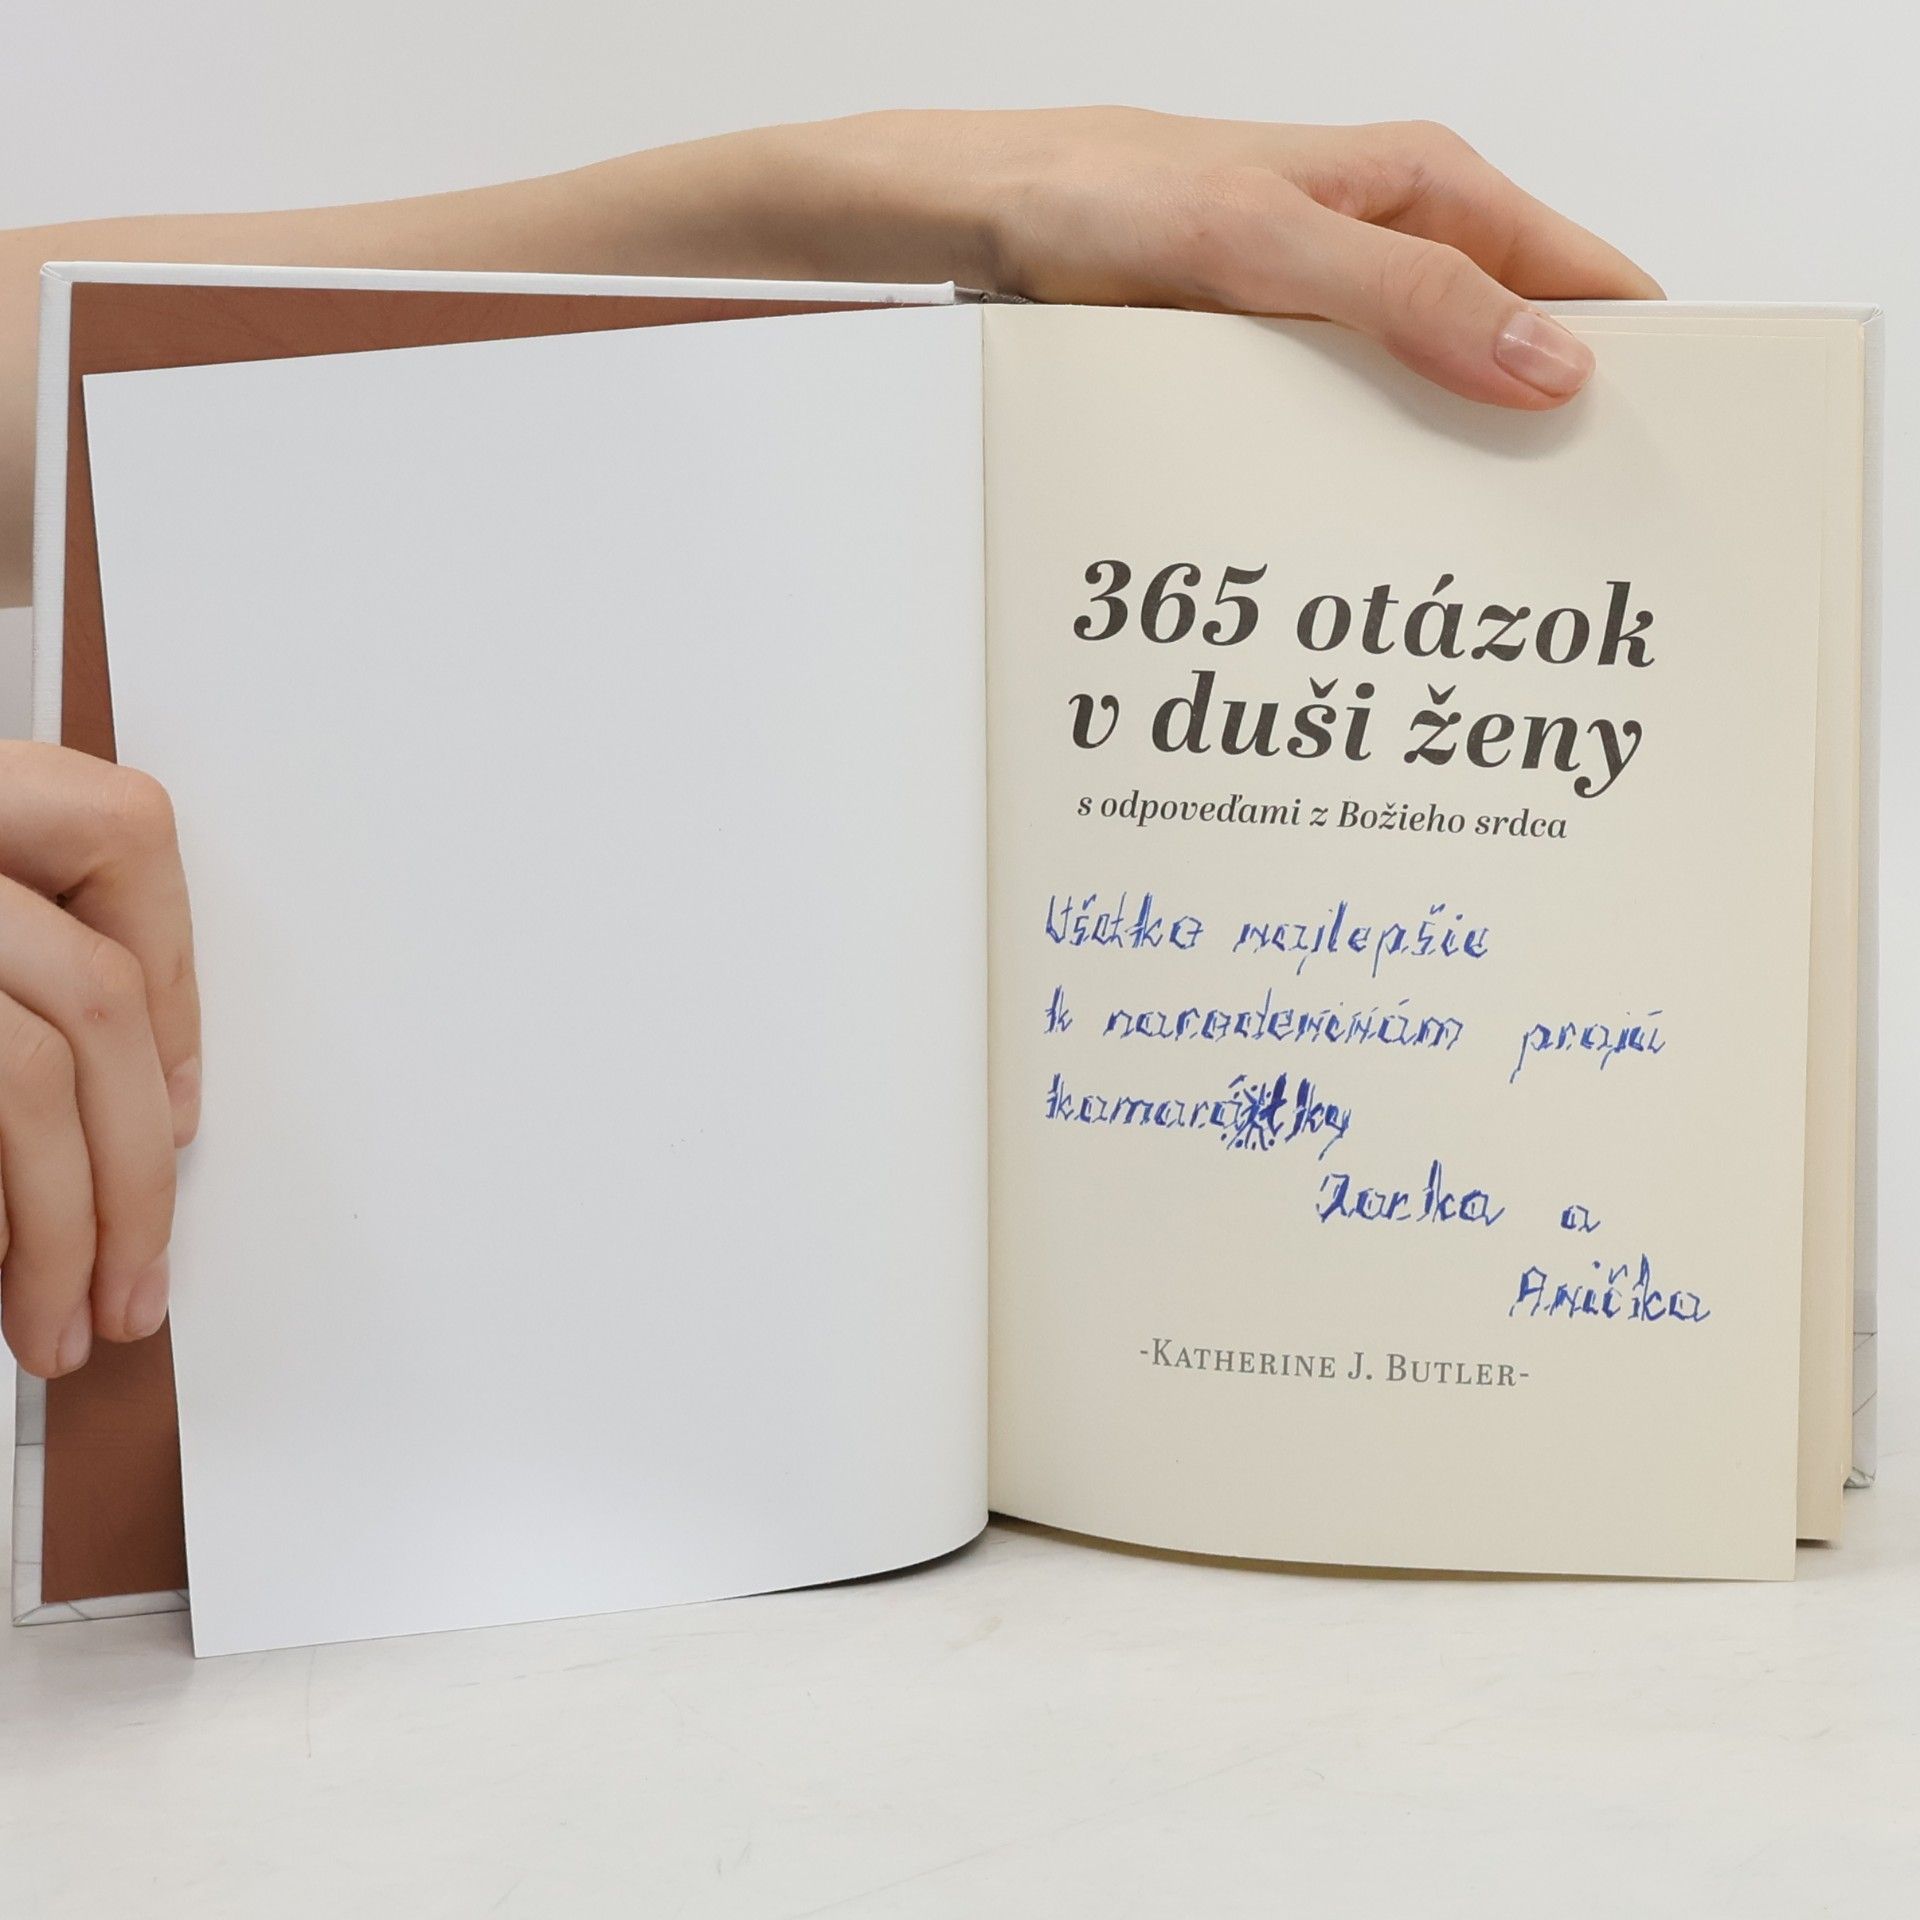 365 otázok
v duši ženy
s odpoveďami z Božieho srdca
Všetko najlepšie
k narodeninám prajú
kamarátky
Jarka a
Anička
-KATHERINE J. BUTLER-